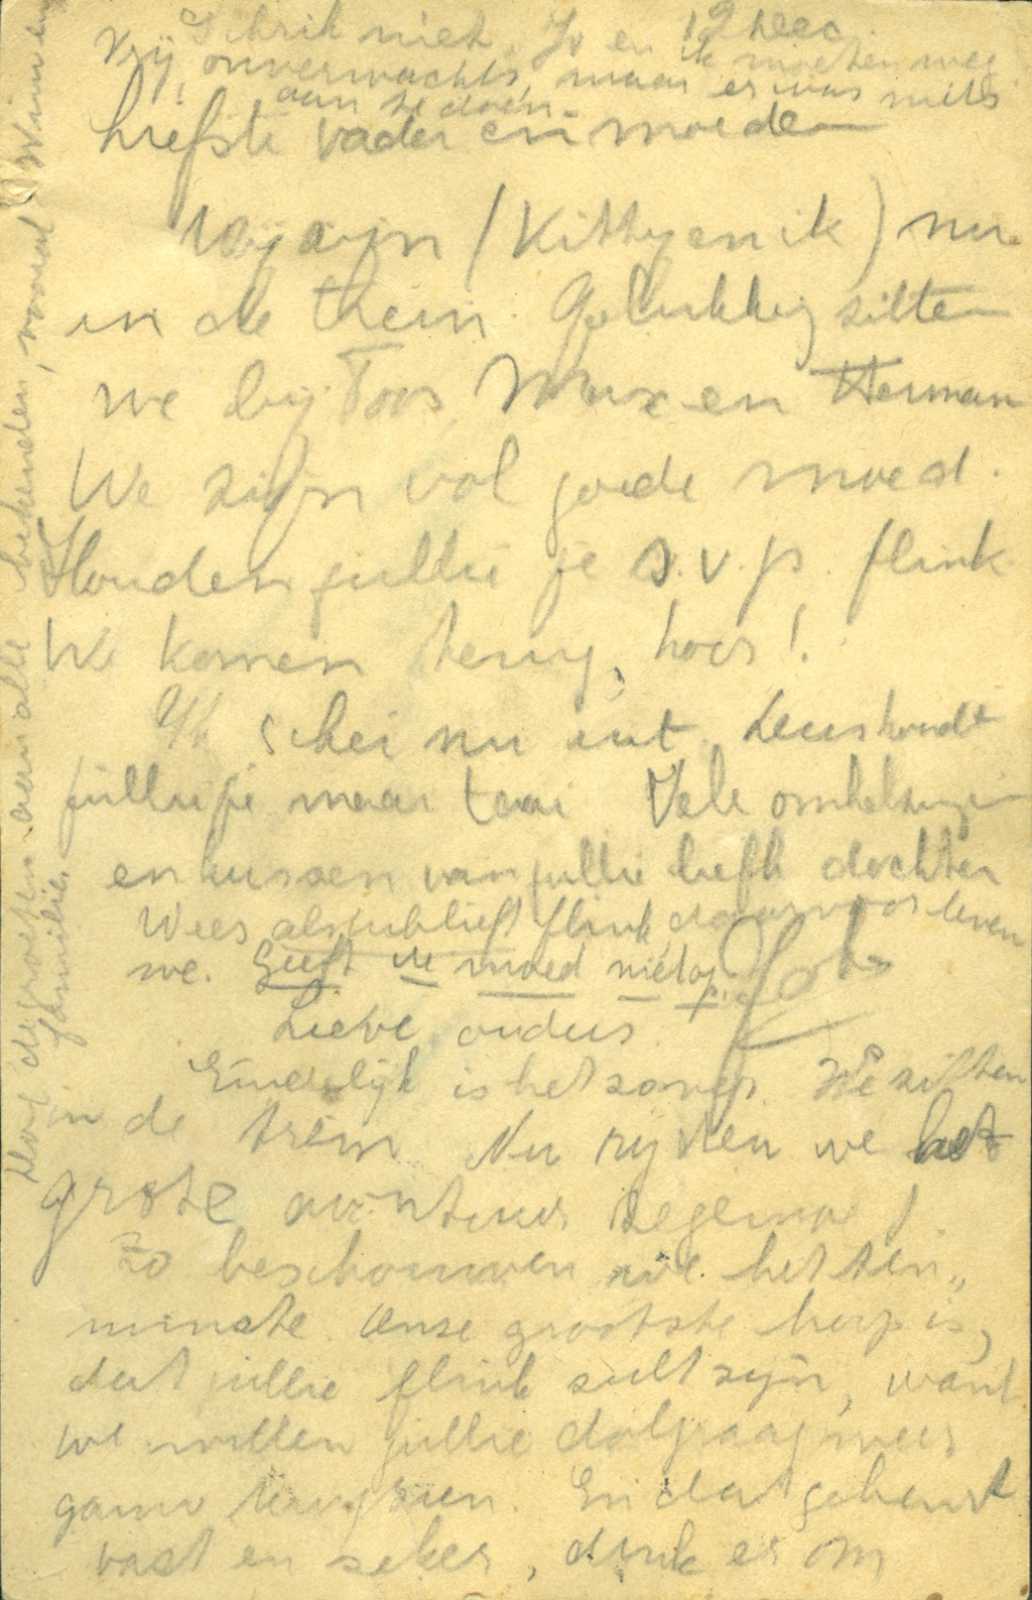 Schrik niet. Jo en ik moeten weg
12 Dec.
Vrij onverwachts, maar er was niets
aan te doen.
Liefste vader en moeder
Wij zijn (Kitty en ik) nu
in de trein. Gelukkig zitten
we bij Toos, Max en Herman
We zijn vol goede moed.
Houden jullie je s.v.p. flink
We komen terug, hoor!
Ik schei nu uit. Heus houdt
jullie je maar taai Vele omhelzingen
en kussen van jullie liefh. dochter
Wees alstublieft flink, daarvoor leven
we. Geeft de moed niet op.
Lieve ouders
Eindelijk is het zover. We zitten
in de trein Nu rijden we het
grote avontuur tegemoet!
Zo beschouwen we het ten„
minste. Onze grootste hoop is,
dat jullie flink zult zijn, want
we willen jullie dolgraag weer
gauw terugzien. En dat gebeurt
vast en zeker, denk er om
de groeten aan alle bekenden, vooral Wim en
familie.